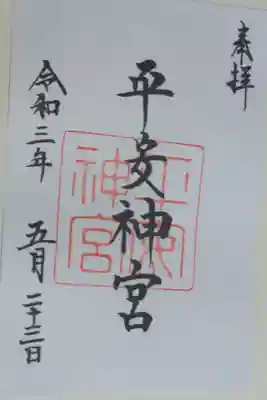 奉拝
平安神宮
令和三年 五月二十三日